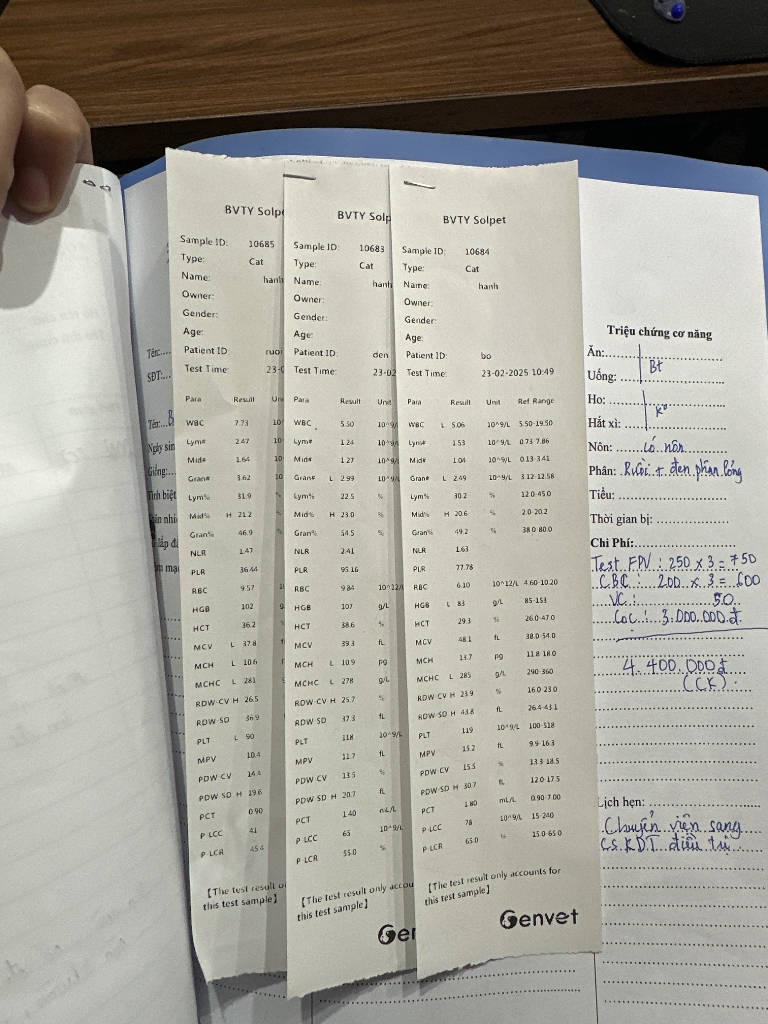 BVTY Solpe
Sample ID: 10685
Type: Cat
Name: hanh
Owner:
Gender:
Age:
Patient ID: ruoi
Test Time: 23-0
Para Result Uni
WBC 7.73 10
Lym# 2.47 10
Mid# 1.64 10
Gran# 3.62 10
Lym% 31.9 %
Mid% H 21.2 %
Gran% 46.9
NLR 1.47
PLR 36.44
RBC 9.57
HGB 102
HCT 36.2
MCV L 37.8
MCH L 10.6
MCHC L 281
RDW-CV H 26.5
RDW-SD 36.9
PLT L 90
MPV 10.4
PDW-CV 14.4
PDW-SD H 19.6
PCT 0.90
P-LCC 41
P-LCR 45.4
【The test result o
this test sample】
BVTY Solp
Sample ID: 10683
Type: Cat
Name: hanh
Owner:
Gender:
Age:
Patient ID: den
Test Time: 23-02
Para Result Unit
WBC 5.50 10^9/
Lym# 1.24 10^9/
Mid# 1.27 10^9/
Gran# L 2.99 10^9/
Lym% 22.5 %
Mid% H 23.0 %
Gran% 54.5 %
NLR 2.41
PLR 95.16
RBC 9.84 10^12/
HGB 107 g/L
HCT 38.6 %
MCV 39.3 fL
MCH L 10.9 pg
MCHC L 278 g/L
RDW-CV H 25.7 %
RDW-SD 37.3 fL
PLT 118 10^9/L
MPV 11.7 fL
PDW-CV 13.5 %
PDW-SD H 20.7 fL
PCT 1.40 mL/L
P-LCC 65 10^9/L
P-LCR 55.0 %
【The test result only accou
this test sample】
Ger
BVTY Solpet
Sample ID: 10684
Type: Cat
Name: hanh
Owner:
Gender:
Age:
Patient ID: bo
Test Time: 23-02-2025 10:49
Para Result Unit Ref Range
WBC L 5.06 10^9/L 5.50-19.50
Lym# 1.53 10^9/L 0.73-7.86
Mid# 1.04 10^9/L 0.13-3.41
Gran# L 2.49 10^9/L 3.12-12.58
Lym% 30.2 % 12.0-45.0
Mid% H 20.6 % 2.0-20.2
Gran% 49.2 % 38.0-80.0
NLR 1.63
PLR 77.78
RBC 6.10 10^12/L 4.60-10.20
HGB L 83 g/L 85-153
HCT 29.3 % 26.0-47.0
MCV 48.1 fL 38.0-54.0
MCH 13.7 pg 11.8-18.0
MCHC L 285 g/L 290-360
RDW-CV H 23.9 % 16.0-23.0
RDW-SD H 43.8 fL 26.4-43.1
PLT 119 10^9/L 100-518
MPV 15.2 fL 9.9-16.3
PDW-CV 15.5 % 13.3-18.5
PDW-SD H 30.7 fL 12.0-17.5
PCT 1.80 mL/L 0.90-7.00
P-LCC 78 10^9/L 15-240
P-LCR 65.0 % 15.0-65.0
【The test result only accounts for
this test sample】
Genvet
Tên:
SĐT:
Tên:
Ngày sin
Giống:
Tính biệt
Triệu chứng cơ năng
Ăn:
Bt
Uống:
Ho:
Ko
Hắt xì:
Nôn: có nôn
Phân: Ruồi + đen phân lỏng
Tiểu:
Thời gian bị:
Chi Phí:
Test FPV : 250 x 3 = 750
CBC : 200 x 3 = 600
VC : 50
Cọc : 3.000.000đ
4.400.000đ
(CK)
Lịch hẹn:
Chuyển viện sang
CS KDT điều trị